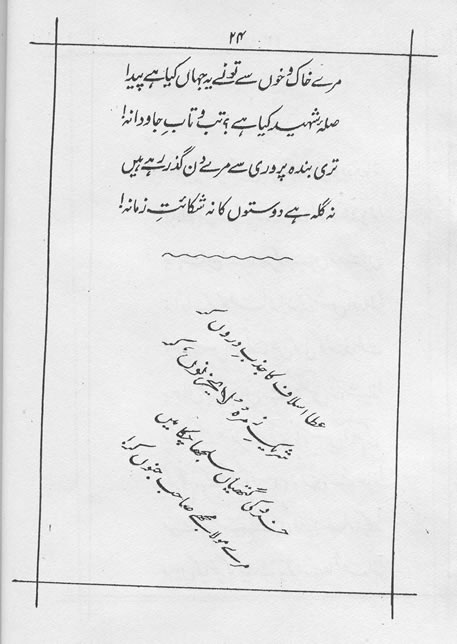 ۲۴
مرے خاک و خوں سے تونے یہ جہاں کیا ہے پیدا
صلۂ شہید کیا ہے؟ تب و تابِ جاودانہ!
تری بندہ پروری سے مرے دن گذر رہے ہیں
نہ گلہ ہے دوستوں کا نہ شکائتِ زمانہ!
عطا اسلاف کا جذبِ دروں کر
شریکِ زمرۂ لا یحزنوں، کر
خرد کی گتھیاں سلجھا چکا میں
مرے مولا مجھے صاحب جنوں کر!